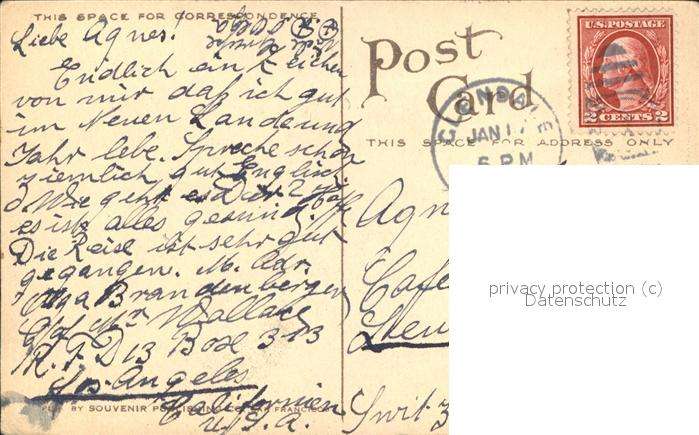 THIS SPACE FOR CORRESPONDENCE
Liebe Agnes!
Endlich ein Zeichen
von mir daß ich gut
im Neuen Lande und
Jahr lebe. Spreche schon
ziemlich gut Englisch
Wie geht es Dir?
es ist alles gesund.
Die Reise ist sehr gut
gegangen. M. Adr.
Olga Brandenberger
C/of Mr Wallace
R. F. D 13 Box 313
Los-Angeles
Californien
U. S. A.
PUB. BY SOUVENIR PUBLISHING CO. SAN FRANCISCO
Post
Card
U.S. POSTAGE
2 CENTS 2
GLENDALE
JAN 1
6 PM
THIS SPACE FOR ADDRESS ONLY
Agn
Cafe
Switz
privacy protection (c)
Datenschutz